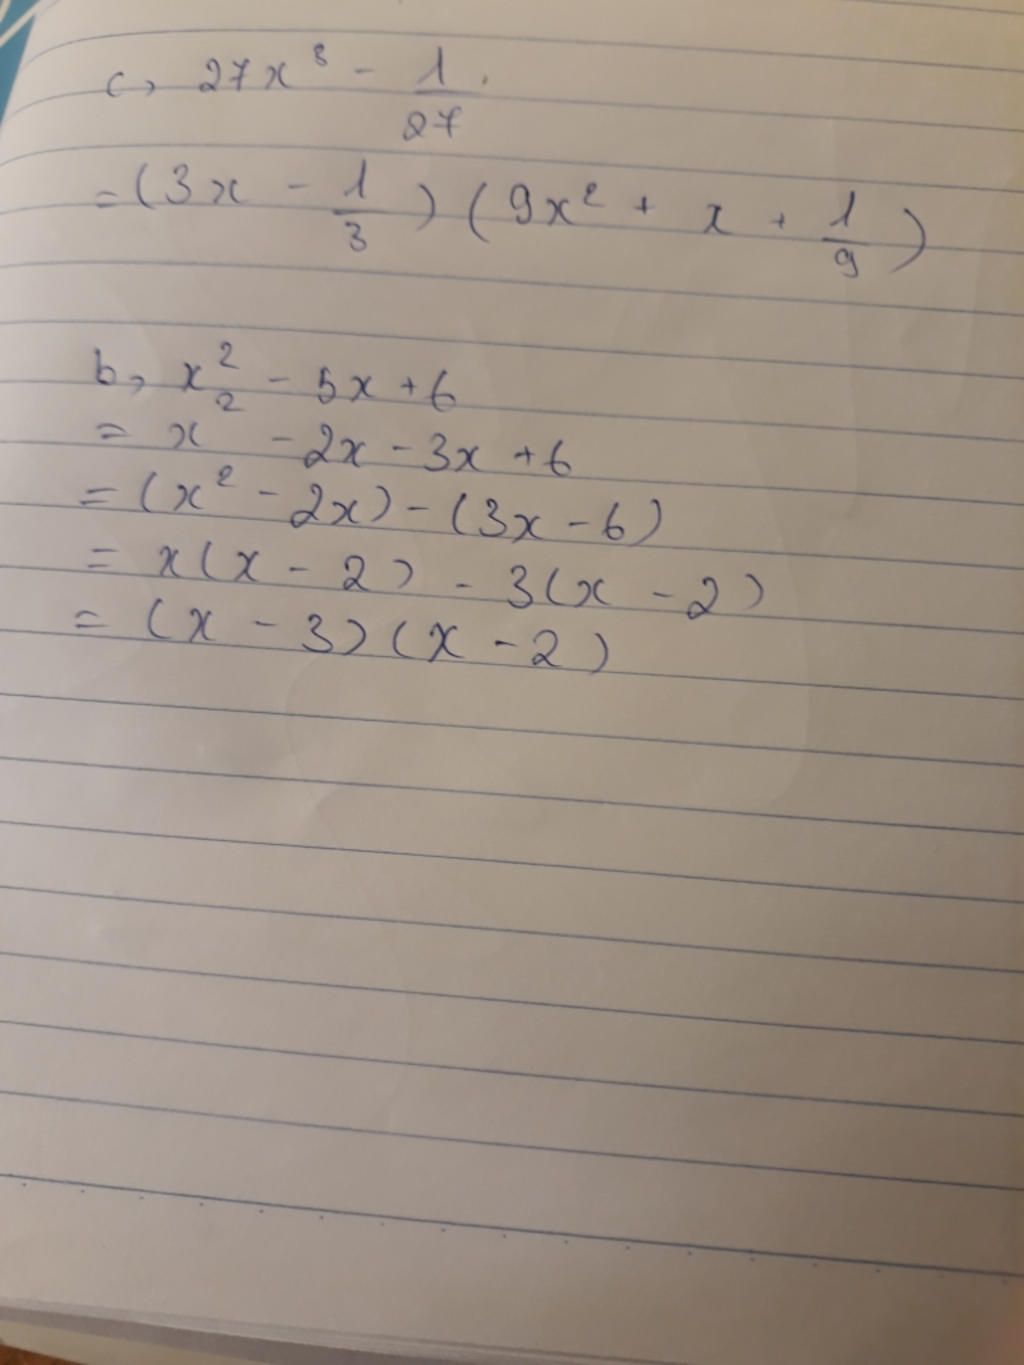 c, 27x³ - 1/27.
= (3x - 1/3) (9x² + x + 1/9)
b, x² - 5x + 6
= x² - 2x - 3x + 6
= (x² - 2x) - (3x - 6)
= x(x - 2) - 3(x - 2)
= (x - 3)(x - 2)